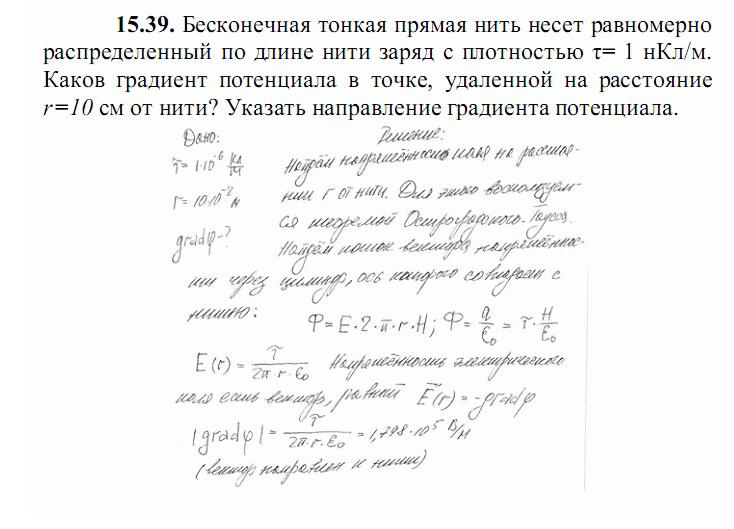 15.39. Бесконечная тонкая прямая нить несет равномерно
распределенный по длине нити заряд с плотностью τ= 1 нКл/м.
Каков градиент потенциала в точке, удаленной на расстояние
r=10 см от нити? Указать направление градиента потенциала.
Дано: Решение:
τ=1·10⁻⁶ Кл/м Найдём напряжённость поля на расстоя-
r=10·10⁻² м нии r от нити. Для этого воспользуем-
ся теоремой Остроградского-Гаусса.
gradφ-? Найдём поток вектора напряжённос-
ти через цилиндр, ось которого совпадает с
нитью: Φ=E·2·π·r·H; Φ=q/ε₀=τ·H/ε₀
E(r)=τ/2π·r·ε₀ Напряжённость электрического
поля есть вектор, равный E⃗(r)=-gradφ
|gradφ|=τ/2π·r·ε₀=1,798·10⁵ В/м
(вектор направлен к нити)